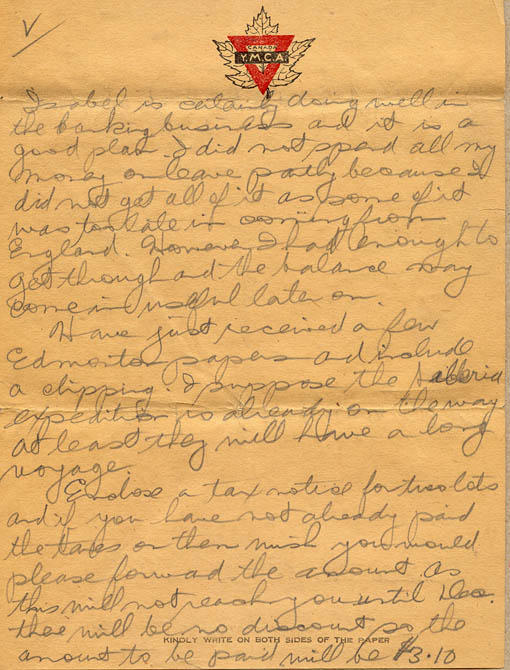 V
CANADA
Y.M.C.A.
Isabel is certainly doing well in
the banking business and it is a
good plan. I did not spend all my
money on leave partly because I
did not get all of it as some of it
was too late in coming from
England. However I had enough to
get through and the balance may
come in useful later on.
Have just received a few
Edmonton papers and include
a clipping. I suppose the Siberia
expedition is already on the way
at least they will have a long
voyage.
Enclose a tax notice for two lots
and if you have not already paid
the taxes on them wish you would
please forward the amount. as
this will not reach you until Dec.
there will be no discount so the
KINDLY WRITE ON BOTH SIDES OF THE PAPER
amount to be paid will be $3.10